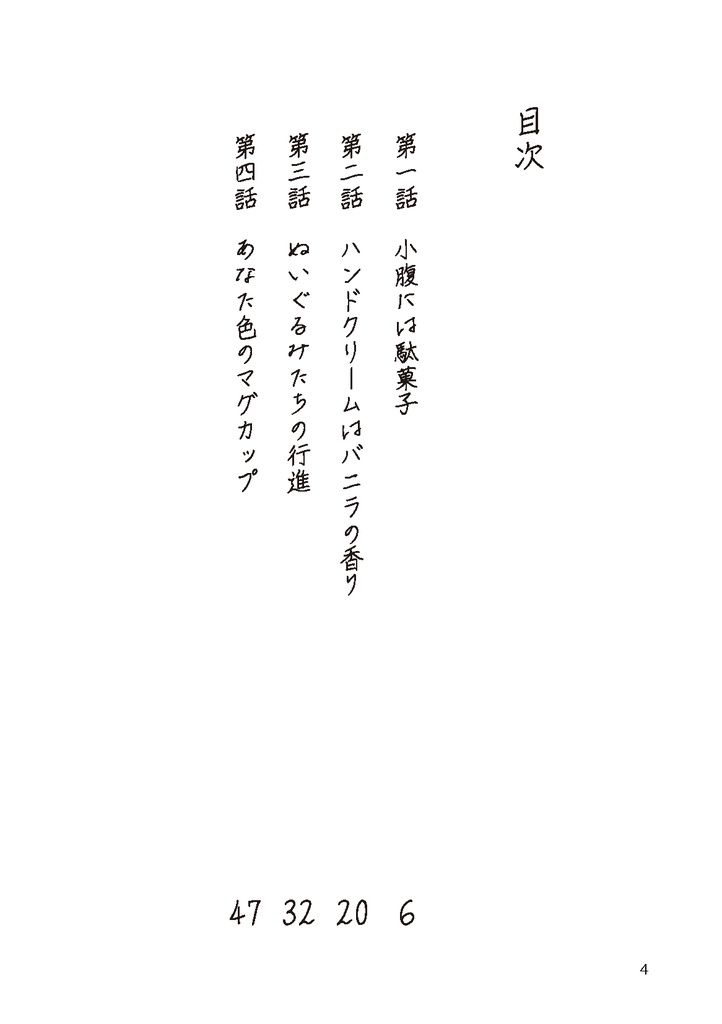 目次
第一話 小腹には駄菓子 6
第二話 ハンドクリームはバニラの香り 20
第三話 ぬいぐるみたちの行進 32
第四話 あなた色のマグカップ 47
4